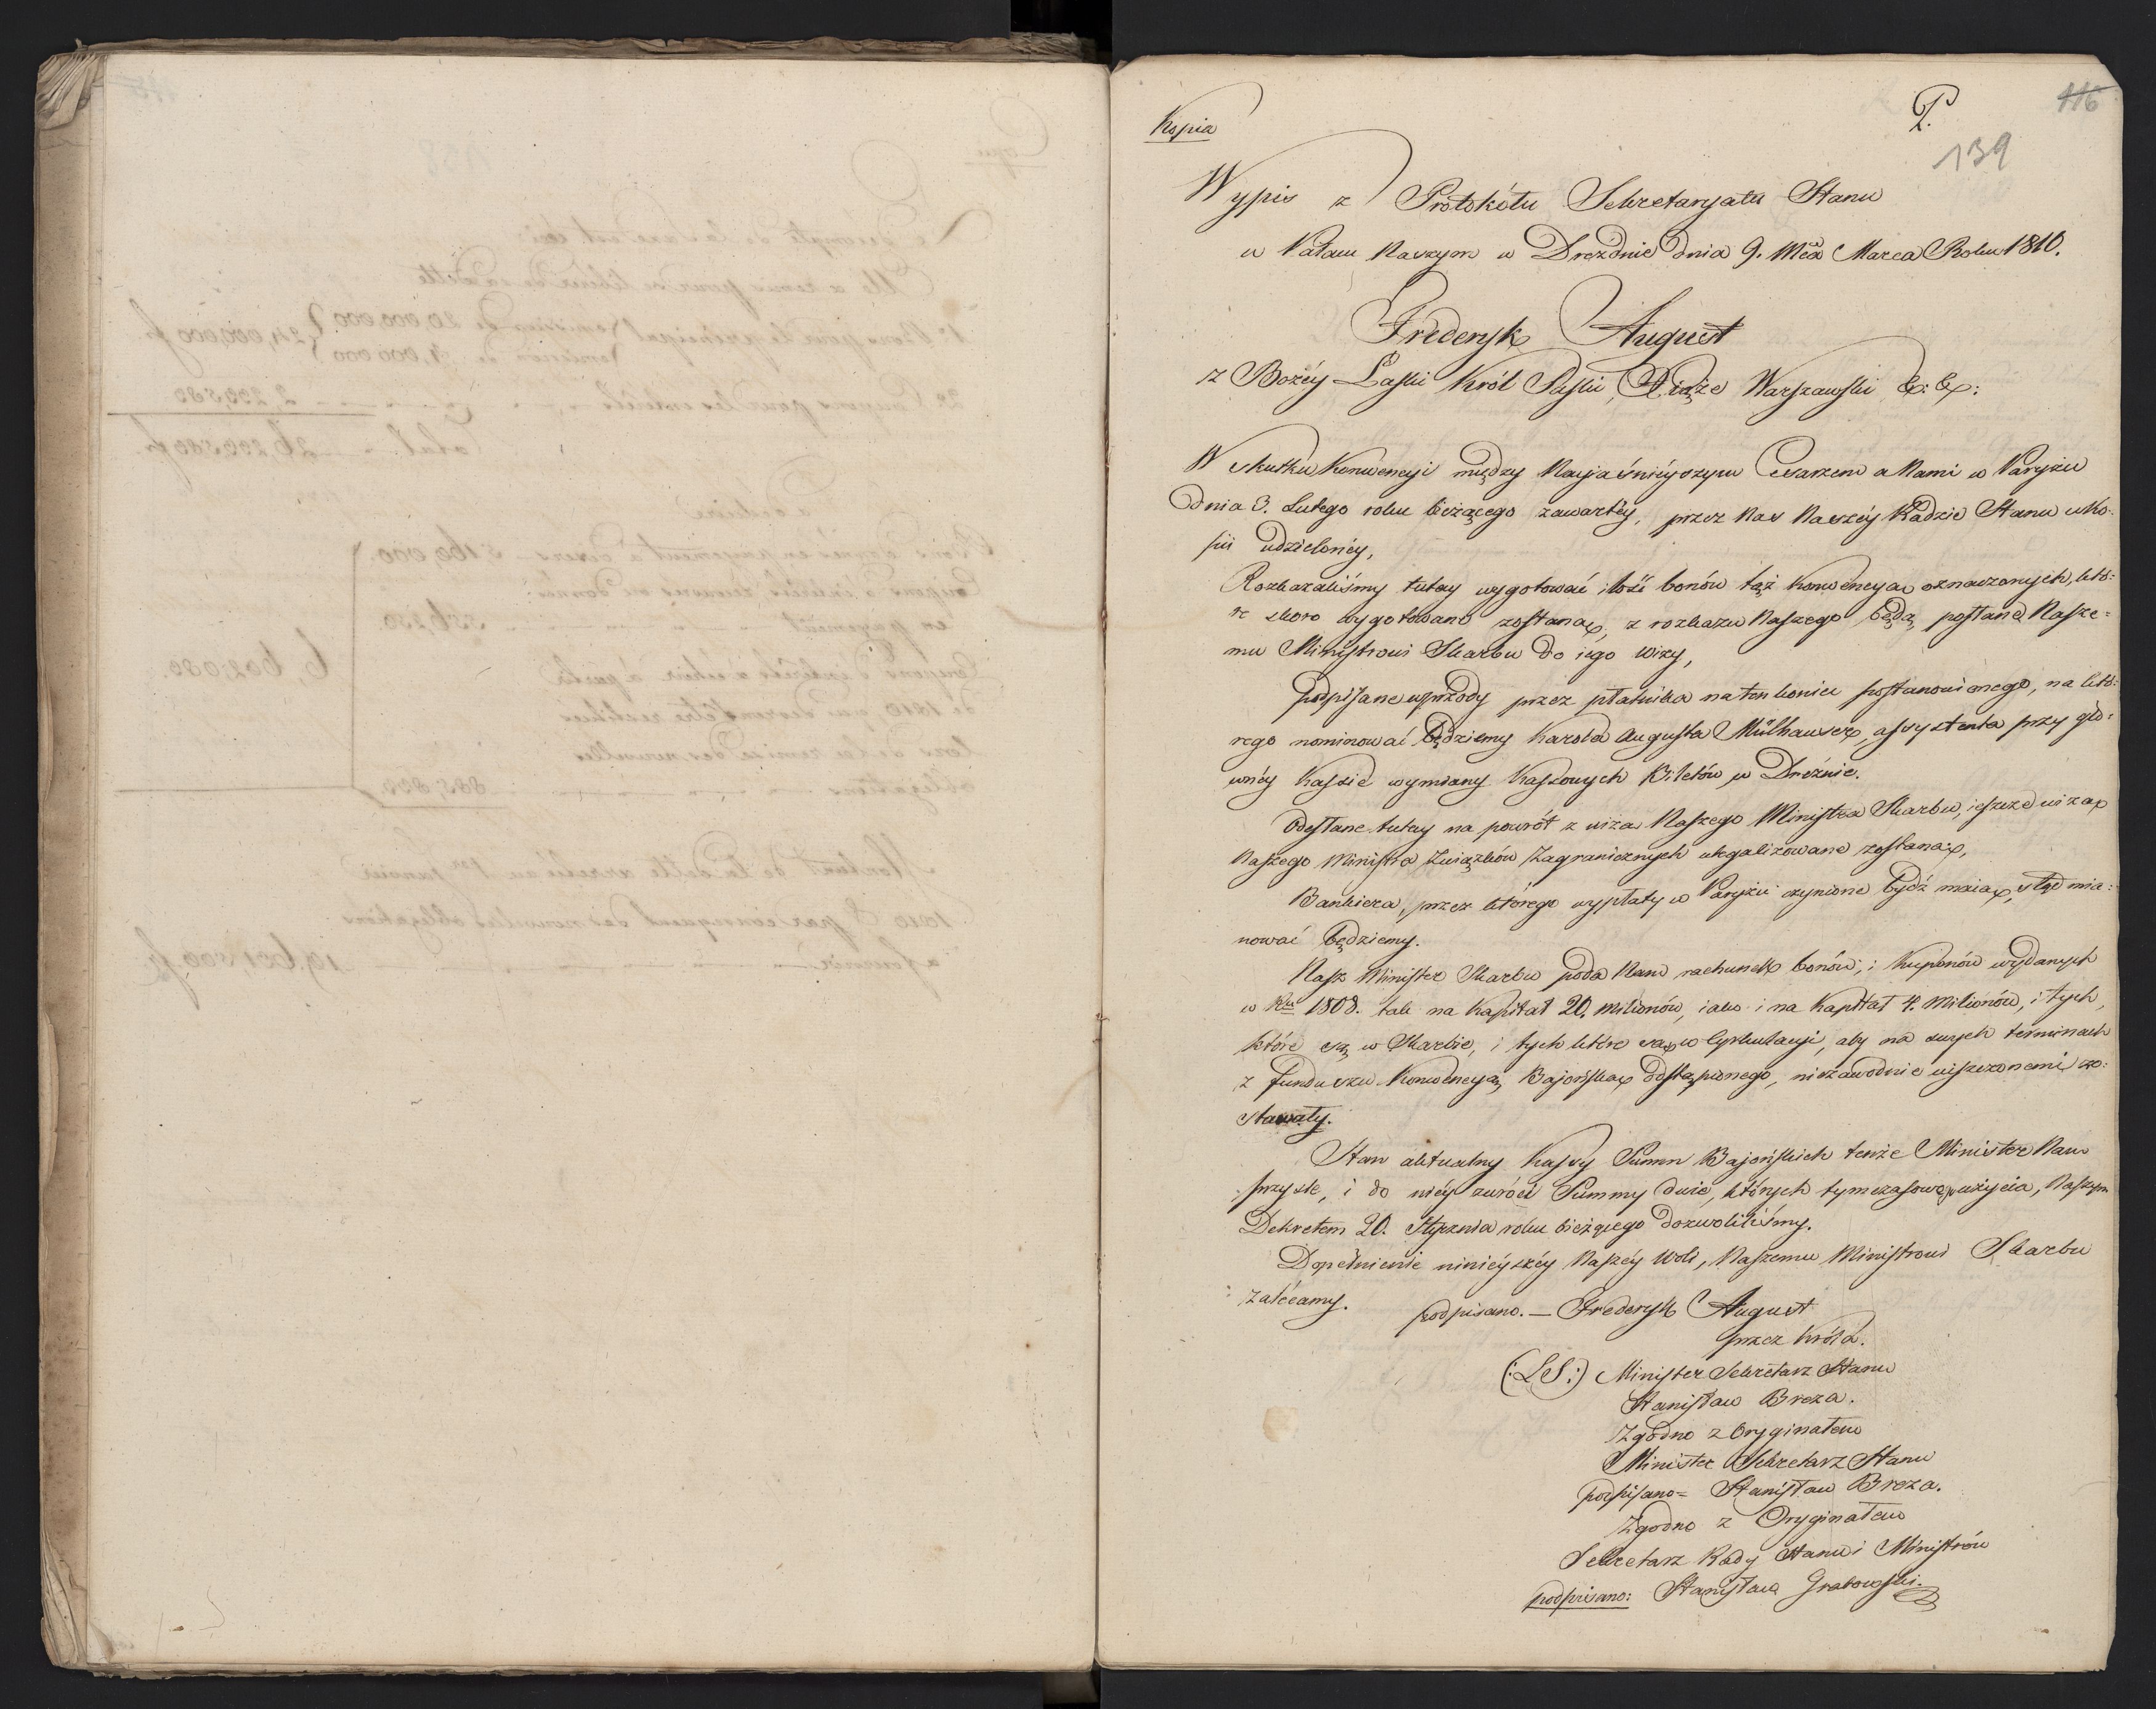 Kopia
P.
116
139
Wypis z Protokółu Sekretaryatu Stanu
w Pałacu Naszym w Dreznie dnia 9. Mca Marca Roku 1810.
Fryderyk August
z Bożéy Łaski Król Saski, Xiąże Warszawski &: &:
W skutku Konwencyi między Nayiaśniéyszym Cesarzem a Nami w Paryżu
dnia 3. Lutego roku bieżącego zawartéy, przez Nas Naszéy Radzie Stanu w ko-
pii udzielonéy,
Rozkazaliśmy tutay wygotować ilość bonów tąż Konwencyą oznaczonych, któ-
re skoro wygotowane zostaną, z rozkazu Naszego będą posłane Nasze-
mu Ministrowi Skarbu do iego wizy,
podpisane wprzody przez płatnika na ten koniec postanowionego, na któ-
rego nominować będziemy Karola Augusta Mülhauser, assystenta przy głó-
wnéy Kassie wymiany Kassowych Biletów w Dreźnie.
Odesłane tutay na powrót z wizą Naszego Ministra Skarbu, ieszcze wizą
Naszego Ministra Związków Zagranicznych ulegalizowane zostaną,
Bankiera, przez którego wypłaty w Paryżu czynione bydź maią, stąd mia-
nować będziemy.
Nasz Minister Skarbu poda Nam rachunek bonów, i Kuponów wydanych
w Rku 1808. tak na Kapitał 20. milionów, iako i na Kapitał 4. Milionów, i tych,
które są w Skarbie, i tych które są w Cyrkulacyi, aby na swych terminach
z funduszu Konwencyą Bajońską odstąpionego, niezawodnie uiszczonemi zo-
stawały.
Stan aktualny Kassy Summ Bajońskich tenże Minister Nam
przyśle, i do niéy zwróci Summy dwie, których tymczasowego użycia, Naszym
Dekretem 20. Stycznia roku bieżącego dozwoliliśmy.
Dopełnienie ninieyszéy Naszéy Woli, Naszemu Ministrowi Skarbu
zalécamy.
podpisano. — Fryderyk August
przez Króla.
(:LS:) Minister Sekretarz Stanu
Stanisław Breza.
Zgodno z Oryginałem
Minister Sekretarz Stanu
podpisano= Stanisław Breza.
Zgodno z Oryginałem
Sekretarz Rady Stanu i Ministrów
podpisano: Stanisław Grabowski.